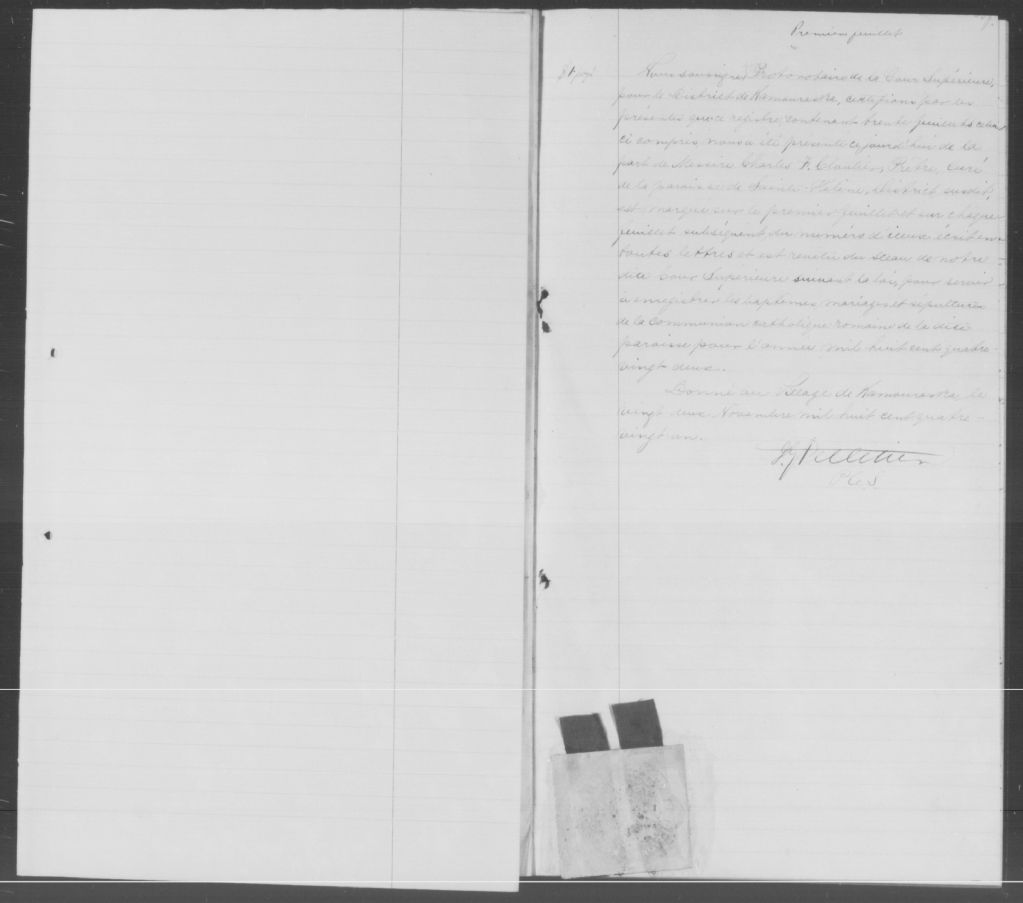 Premier feuillet
Nous soussigné, Protonotaire de la Cour Supérieure,
pour le District de Kamouraska, certifions par les
présentes que ce registre, contenant trente feuillets celui
ci compris, nous a été présenté ce jourd'hui de la
part de Messire Charles F. Cloutier, Ptre, curé
de la paroisse de Sainte-Hélène, District susdit,
est marqué sur le premier feuillet et sur chaque
feuillet subséquent du numéro d'iceux écrit en
toutes lettres et est revêtu du sceau de notre
dite Cour Supérieure suivant la loi, pour servir
à enregistrer les baptêmes, mariages et sépultures
de la communion catholique romaine de la dite
paroisse pour l'année mil huit cent quatre-
vingt deux.
Donné au Greffe de Kamouraska le
vingt deux Novembre mil huit cent quatre-
vingt un.
Pelletier
P.C.S.